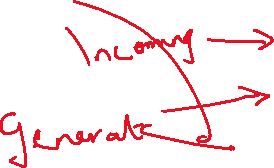 Incoming
Generate